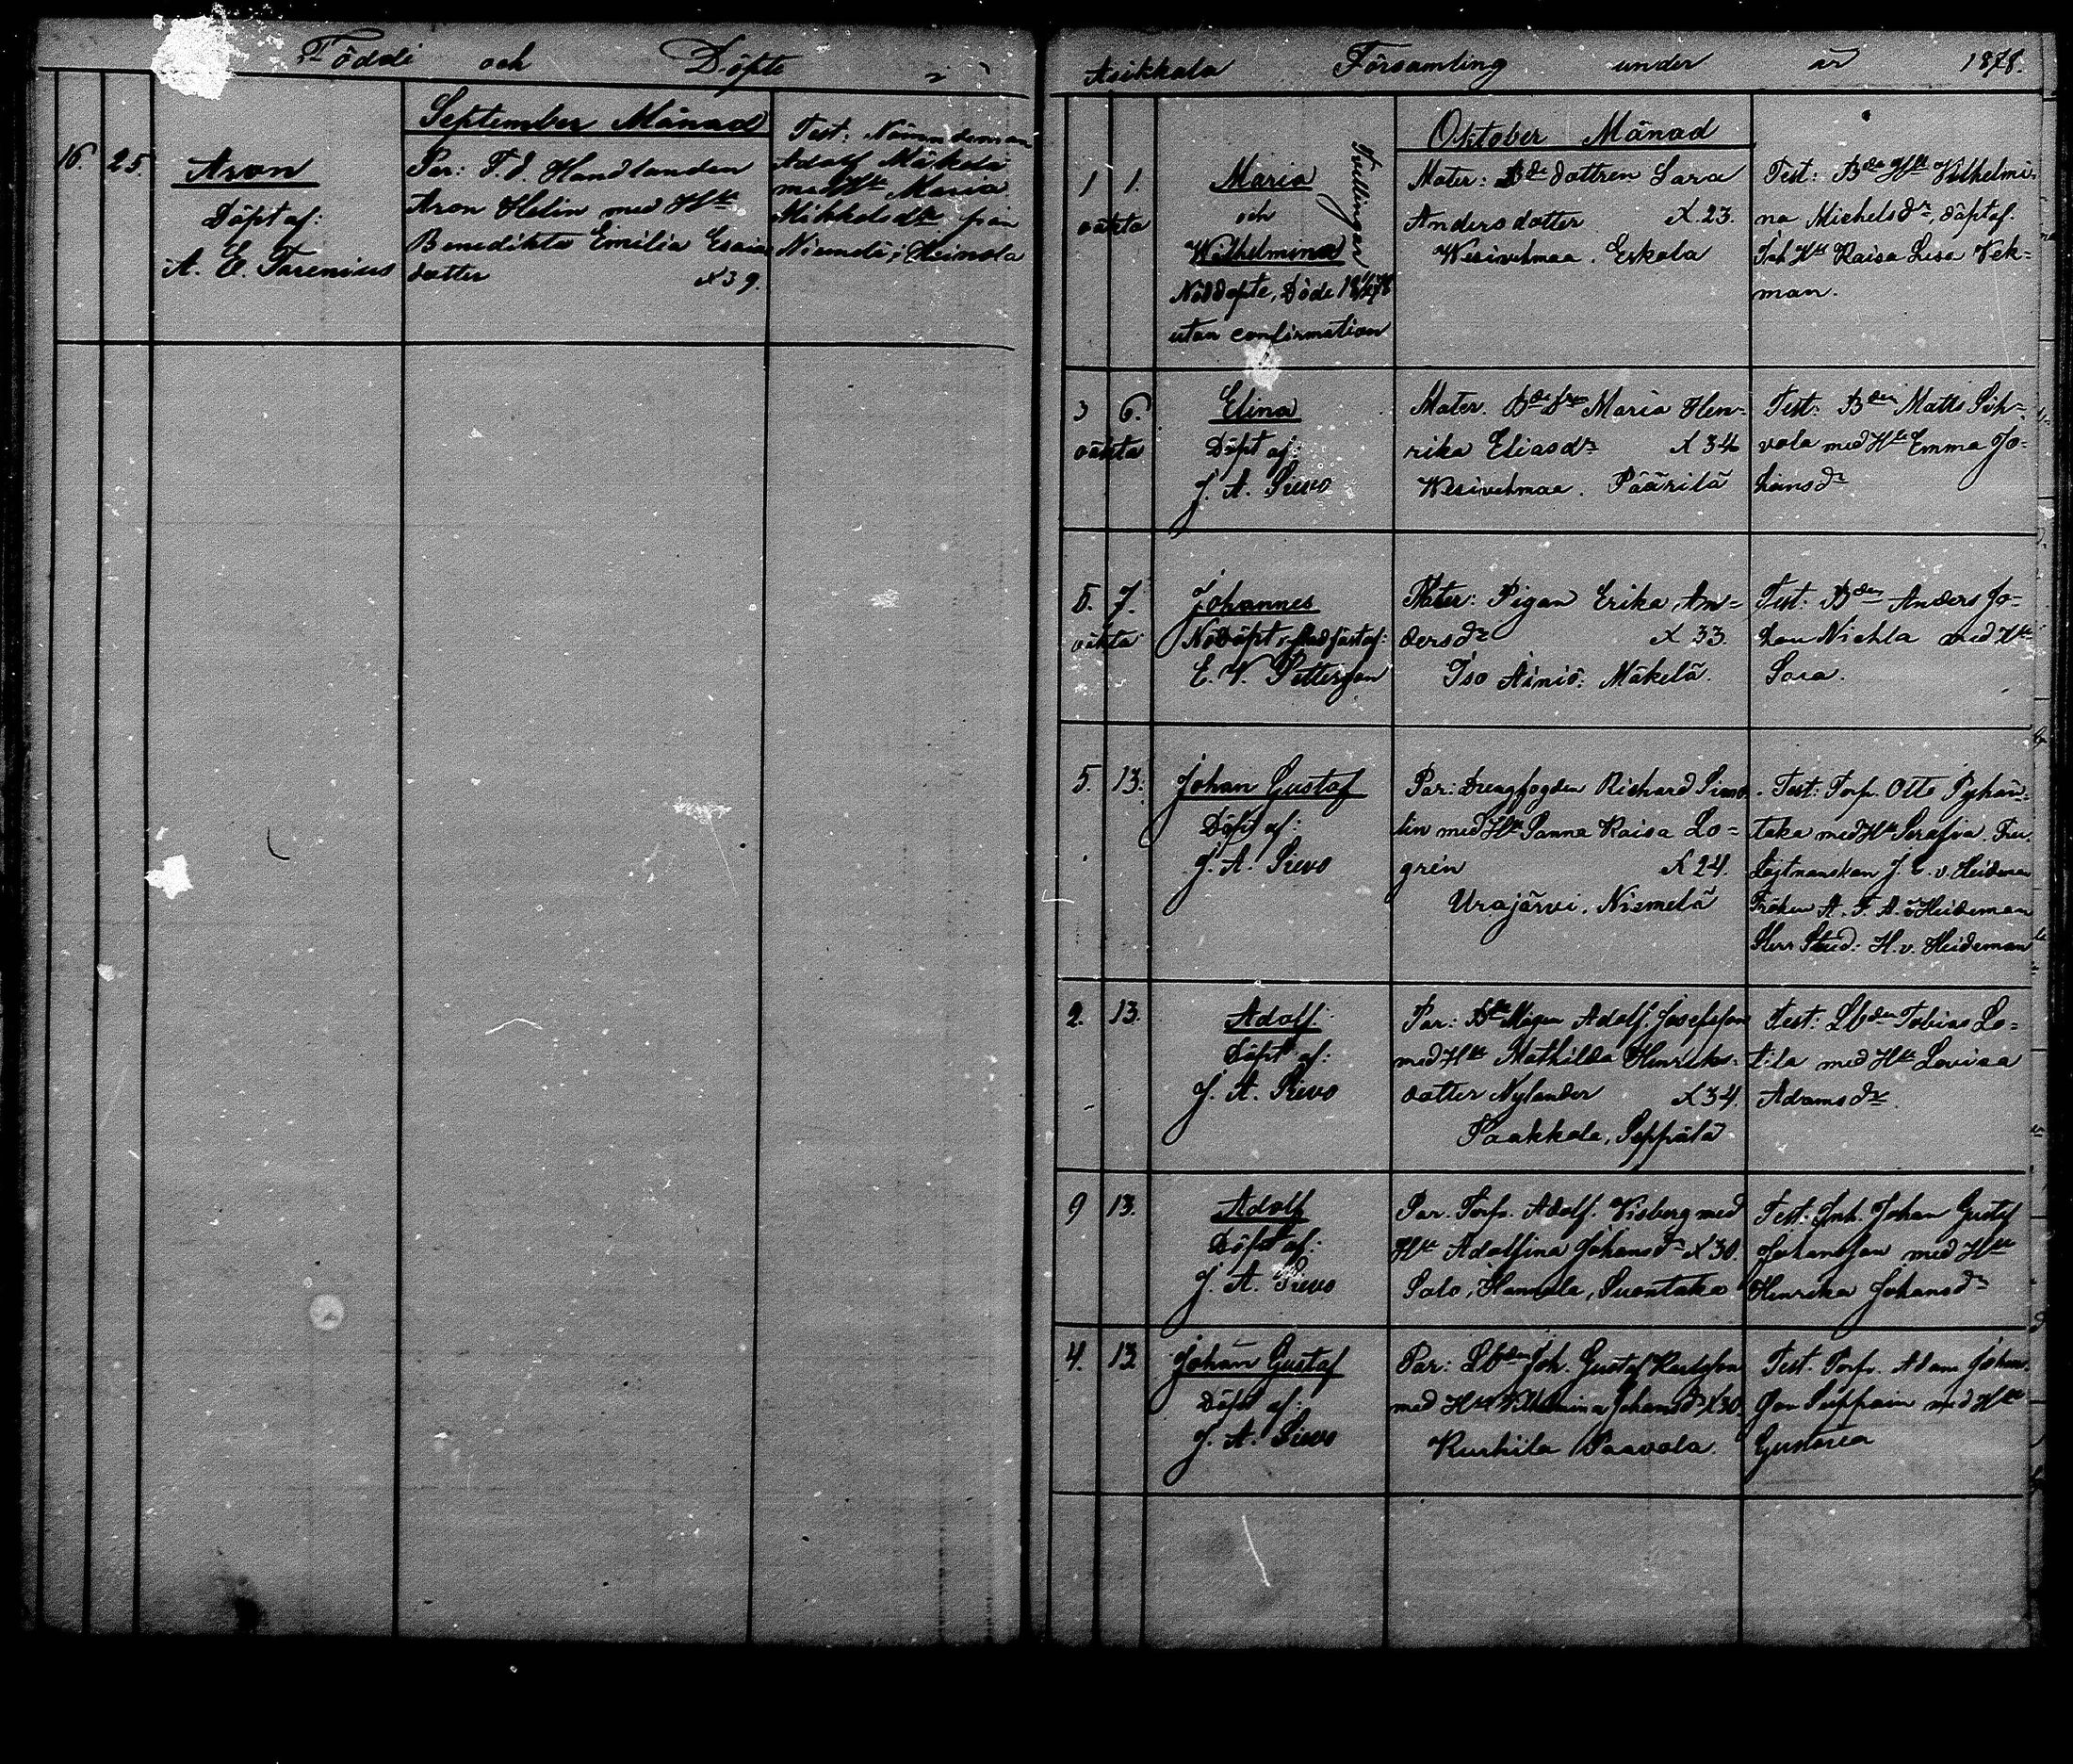 Föddi och Döpte i
September Månad
16. 25.
Aron
Döpt af:
A. E. Tarenius
Par: F. d. Handlanden
Aron Helin med Hu
Benedikta Emilia Esaias
dotter x 39.
Test: Nämndeman
Adolf Mäkelä
med Hu Maria
Mikkelsdr från
Niemelä i Heinola
Asikkala Församling under år 1878.
Oktober Månad
1 1.
oäkta
Maria
och
Wilhelmina
Tvillingar
Nöddöpte, Döde
utan confirmation
Mater: Bde dottren Sara
Andersdotter x. 23.
Wesivehmaa. Erkola
Test: Bde Hu Vilhelmi-
na Michelsdr, döpt af.
Inh Hu Kaisa Lisa Vek-
man.
3 6.
oäkta
Elina
Döpt af:
J. A. Sievo
Mater. Maria Hen-
rika Eliasdr x 34
Wesivehmaa. Päärilä
Test: Bden Matts Sih-
vola med Hu Emma Jo-
hansdr
5. 7.
oäkta
Johannes
Nöddöpt, stadfäst af:
E. V. Petterson
Mater: Pigan Erika An-
dersdr x 33
Iso Äiniö. Mäkelä.
Test: Bden Anders Jo-
han Niehla med Hu
Sara.
5. 13.
Johan Gustaf
Döpt af:
J. A. Sievo
Par: Drengfogden Richard
lin med Hu Sanna Kaisa Lo-
gren x 24.
Urajärvi. Niemelä
Test: Torp. Otto Pyhän-
taka med Hu Serafia. Fru.
Löjtnanskan J. C. v. Heideman
Fröken A. F. A. v Heideman
Herr Stud: H. v. Heideman
2. 13.
Adolf.
Döpt af:
J. A. Sievo
Par: Adolf Josefsson
med Hu Mathilda Henriks-
dotter Nylander x 34.
Paakkola, Seppälä
Test: Lbden Tobias Lo-
tila med Hu Lovisa
Adamsdr.
9 13.
Adolf
Döpt af:
J. A. Sievo
Par. Torp. Adolf. Visberg med
Hu Adolfina Johansdr x 30.
Salo, Hannula, Suontaka
Test: Inh. Johan Gustaf
Johansson med Hu
Henrika Johansdr
4. 13
Johan Gustaf
Döpt af:
J. A. Sievo
Par: Lbden Joh. Gustaf Karlsson
med Hu Vilhelmina Johansdr x 30
Kurhila Paavola.
Test. Torp. Adam Johans-
son Seppäin med Hu
Gustava